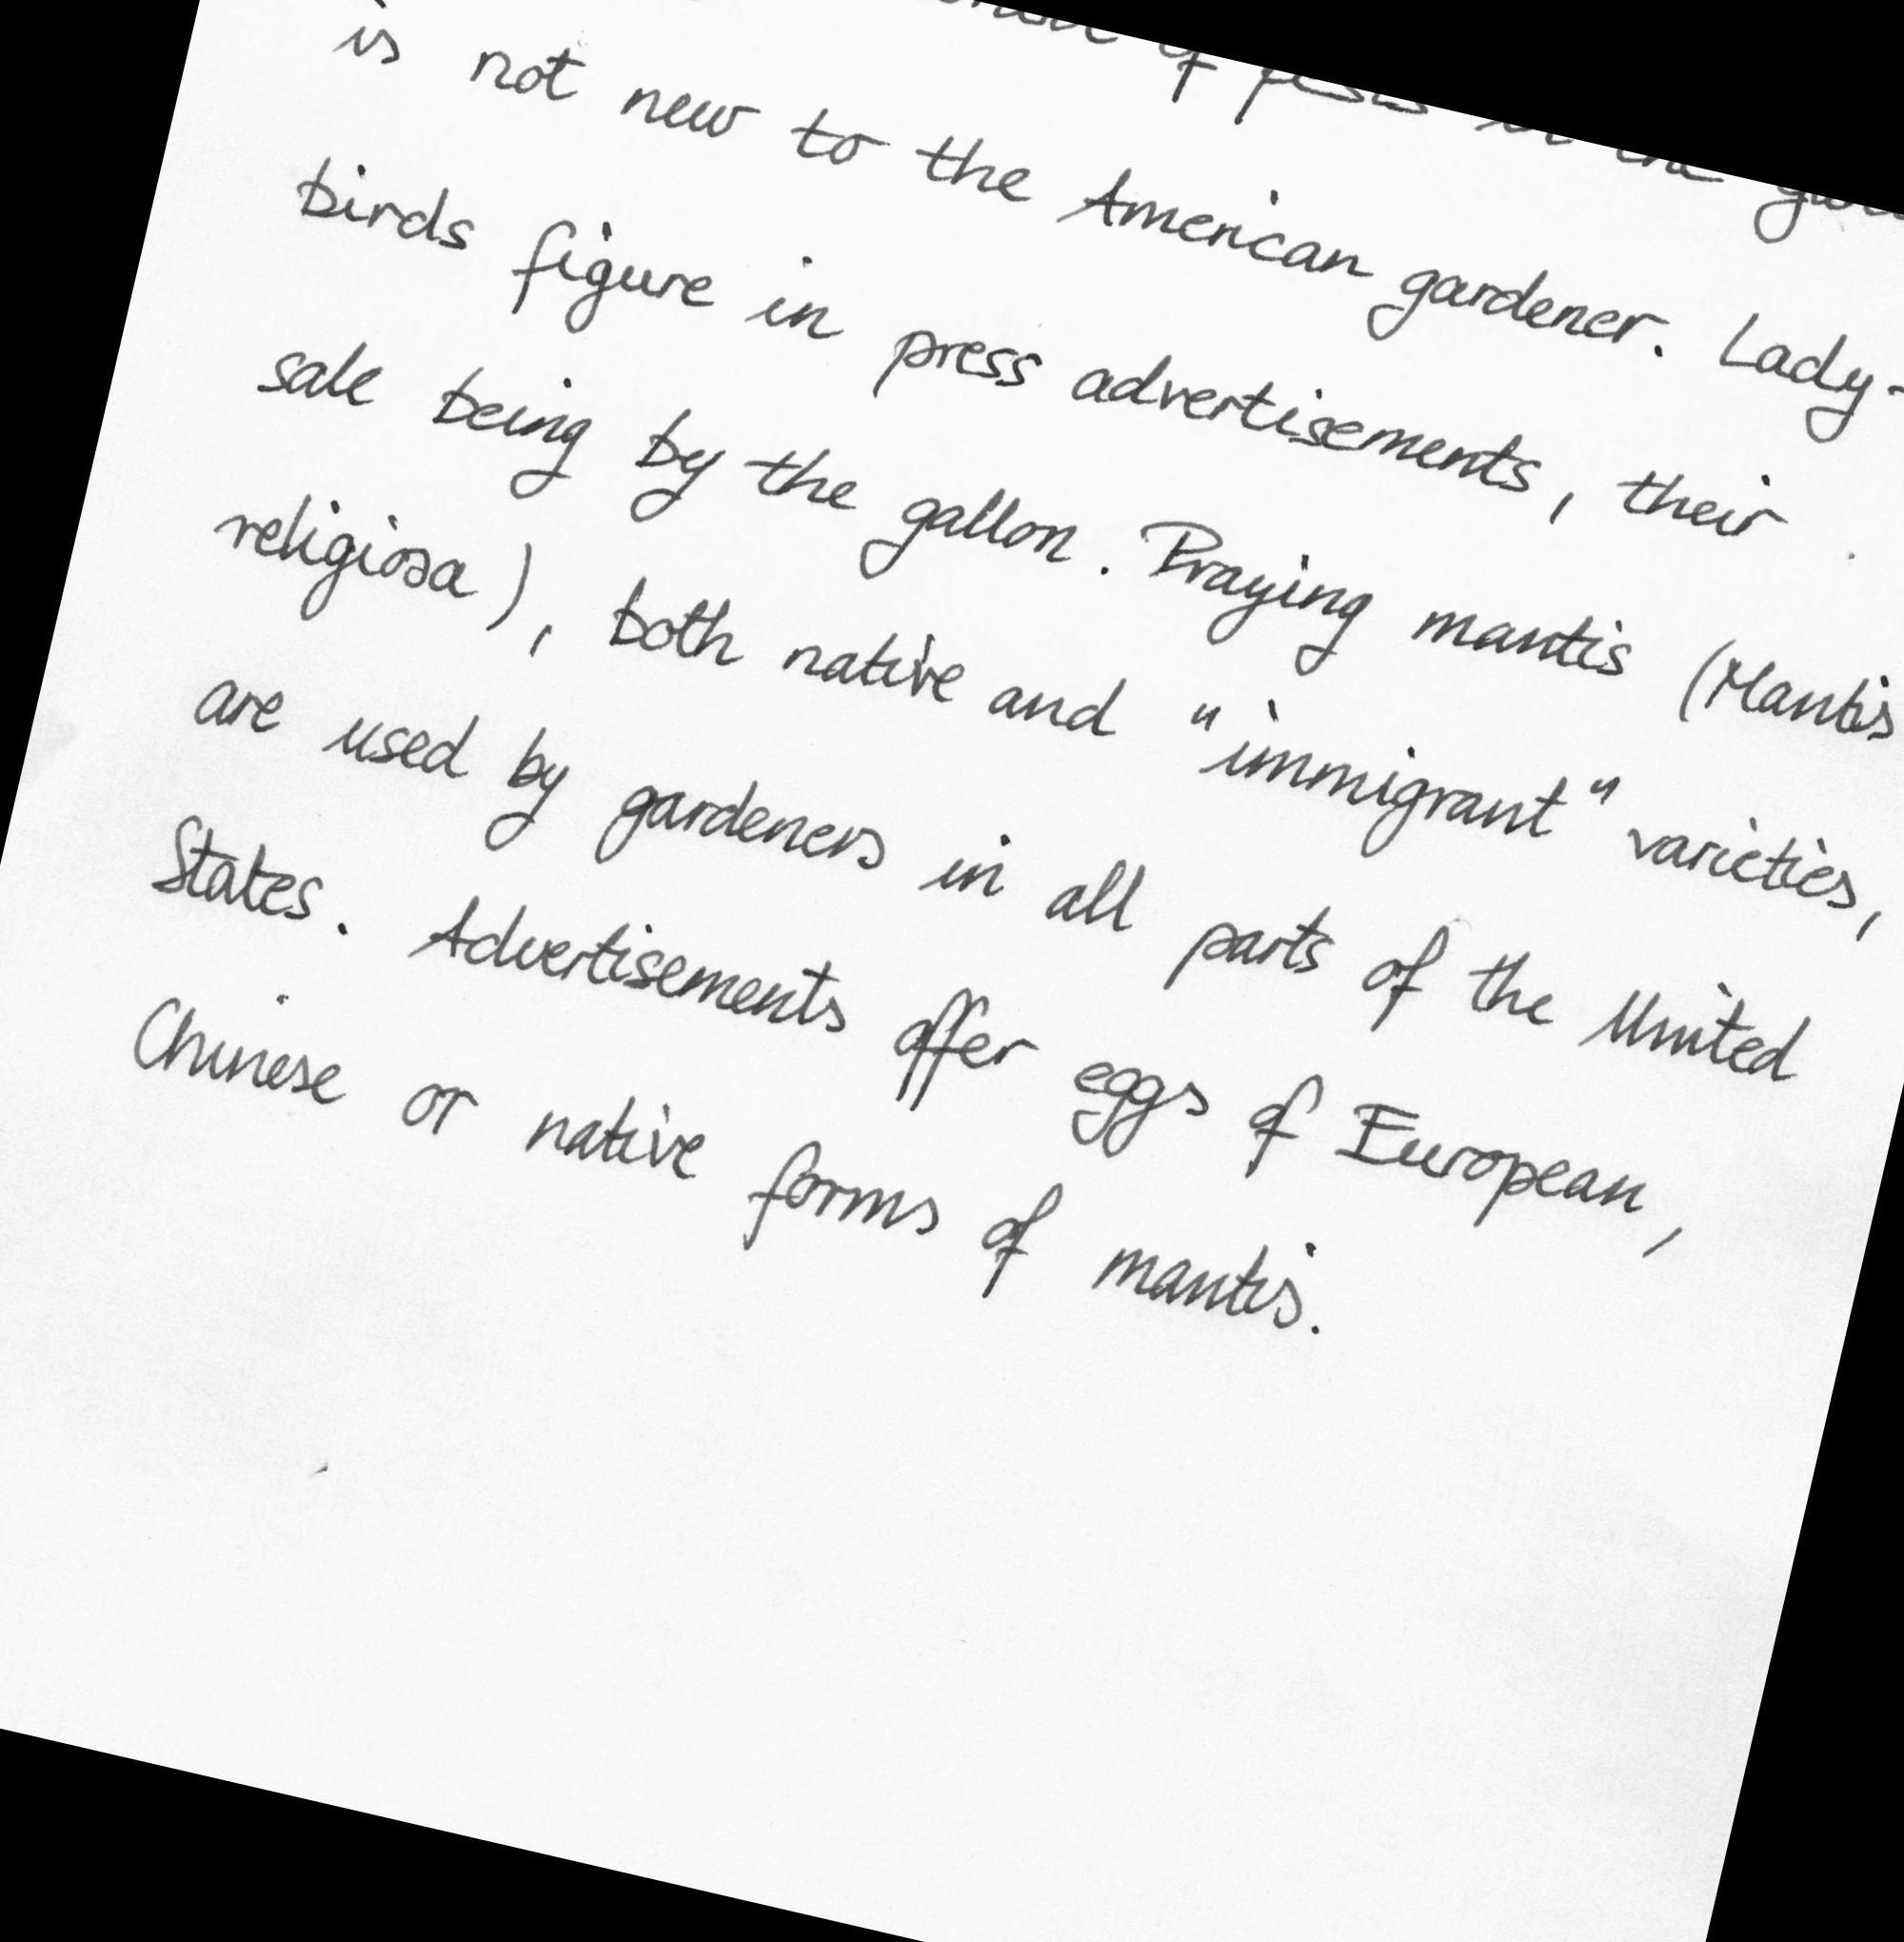 of pests in the
is not new to the American gardener. Lady-
birds figure in press advertisements, their
sale being by the gallon. Praying mantis (Mantis
religiosa), both native and "immigrant" varieties,
are used by gardeners in all parts of the United
States. Advertisements offer eggs of European,
Chinese or native forms of mantis.